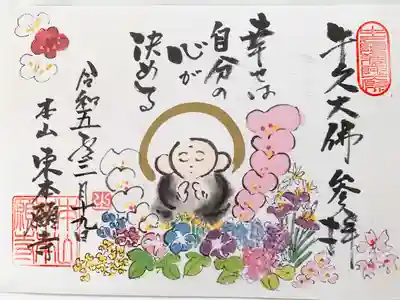 牛久大佛参拝
幸せは
自分の
心が
決める
令和五年三月十九日
本山東本願寺